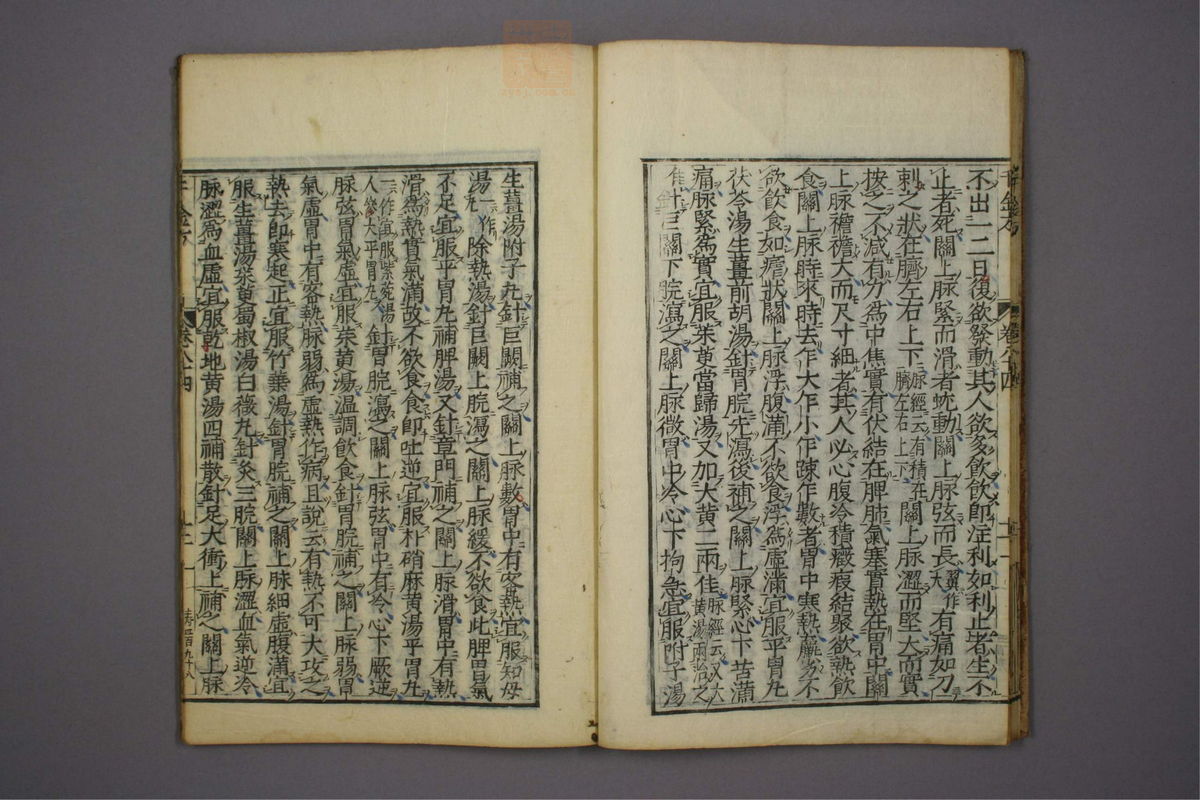 不出一二日後欲發動其人欲多飲飲即注利如利止者生不
止者死關上脉緊而滑者蚘動關上脉弦而長大翼作有痛如刀
刺之狀在臍左右上下脉經云有積在臍左右上下關上脉澀而堅大而實
按之不減有力爲中焦實有伏結在脾肺氣塞實熱在胃中關
上脉襜襜大而尺寸細者其人必心腹冷積癥瘕結聚欲熱飲
食關上脉時來時去乍大乍小乍疎乍數者胃中寒熱羸劣不
欲飲食如瘧狀關上脉浮腹滿不欲食浮爲虛滿宜服平胃丸
茯苓湯生薑前胡湯針胃脘先瀉後補之關上脉緊心下苦滿
痛脉緊爲實宜服茱萸當歸湯又加大黃二兩佳脉經云又大黃湯兩治之
佳針巨闕下脘瀉之關上脉微胃中冷心下拘急宜服附子湯
生薑湯附子丸針巨闕補之關上脉數胃中有客熱宜服知母
湯一作丸除熱湯針巨闕上脘瀉之關上脉緩不欲食此脾胃氣
不足宜服平胃丸補脾湯又針章門補之關上脉滑胃中有熱
滑爲熱實氣滿故不欲食食即吐逆宜服朴硝麻黃湯平胃丸
一作宜服紫菀湯人參大平胃丸針胃脘瀉之關上脉弦胃中有冷心下厥逆
脉弦胃氣虛宜服茱萸湯溫調飲食針胃脘補之關上脉弱胃
氣虛胃中有客熱脉弱爲虛熱作病且說云有熱不可大攻之
熱去即寒起正宜服竹葉湯針胃脘補之關上脉細虛腹滿宜
服生薑湯茱萸蜀椒湯白薇丸針灸三脘關上脉澀血氣逆冷
脉澀爲血虛宜服乾地黃湯四補散針足大衝上補之關上脉
千金方
卷六十四